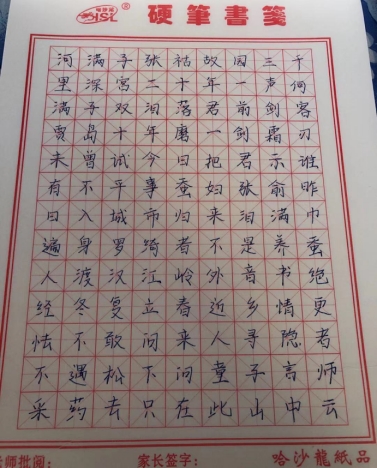 HSL® 硬筆書箋
河满子张祜故国三千
里深宫二十年一声何
满子双泪落君前剑客
贾岛十年磨一剑霜刃
未曾试今日把君示谁
有不平事蚕妇张俞昨
日入城市归来泪满巾
遍身罗绮者不是养蚕
人渡汉江岭外音书绝
经冬复立春近乡情更
怯不敢问来人寻隐者
不遇松下问童子言师
采药去只在此山中云
师批阅： 家长签字： 哈沙龍紙品